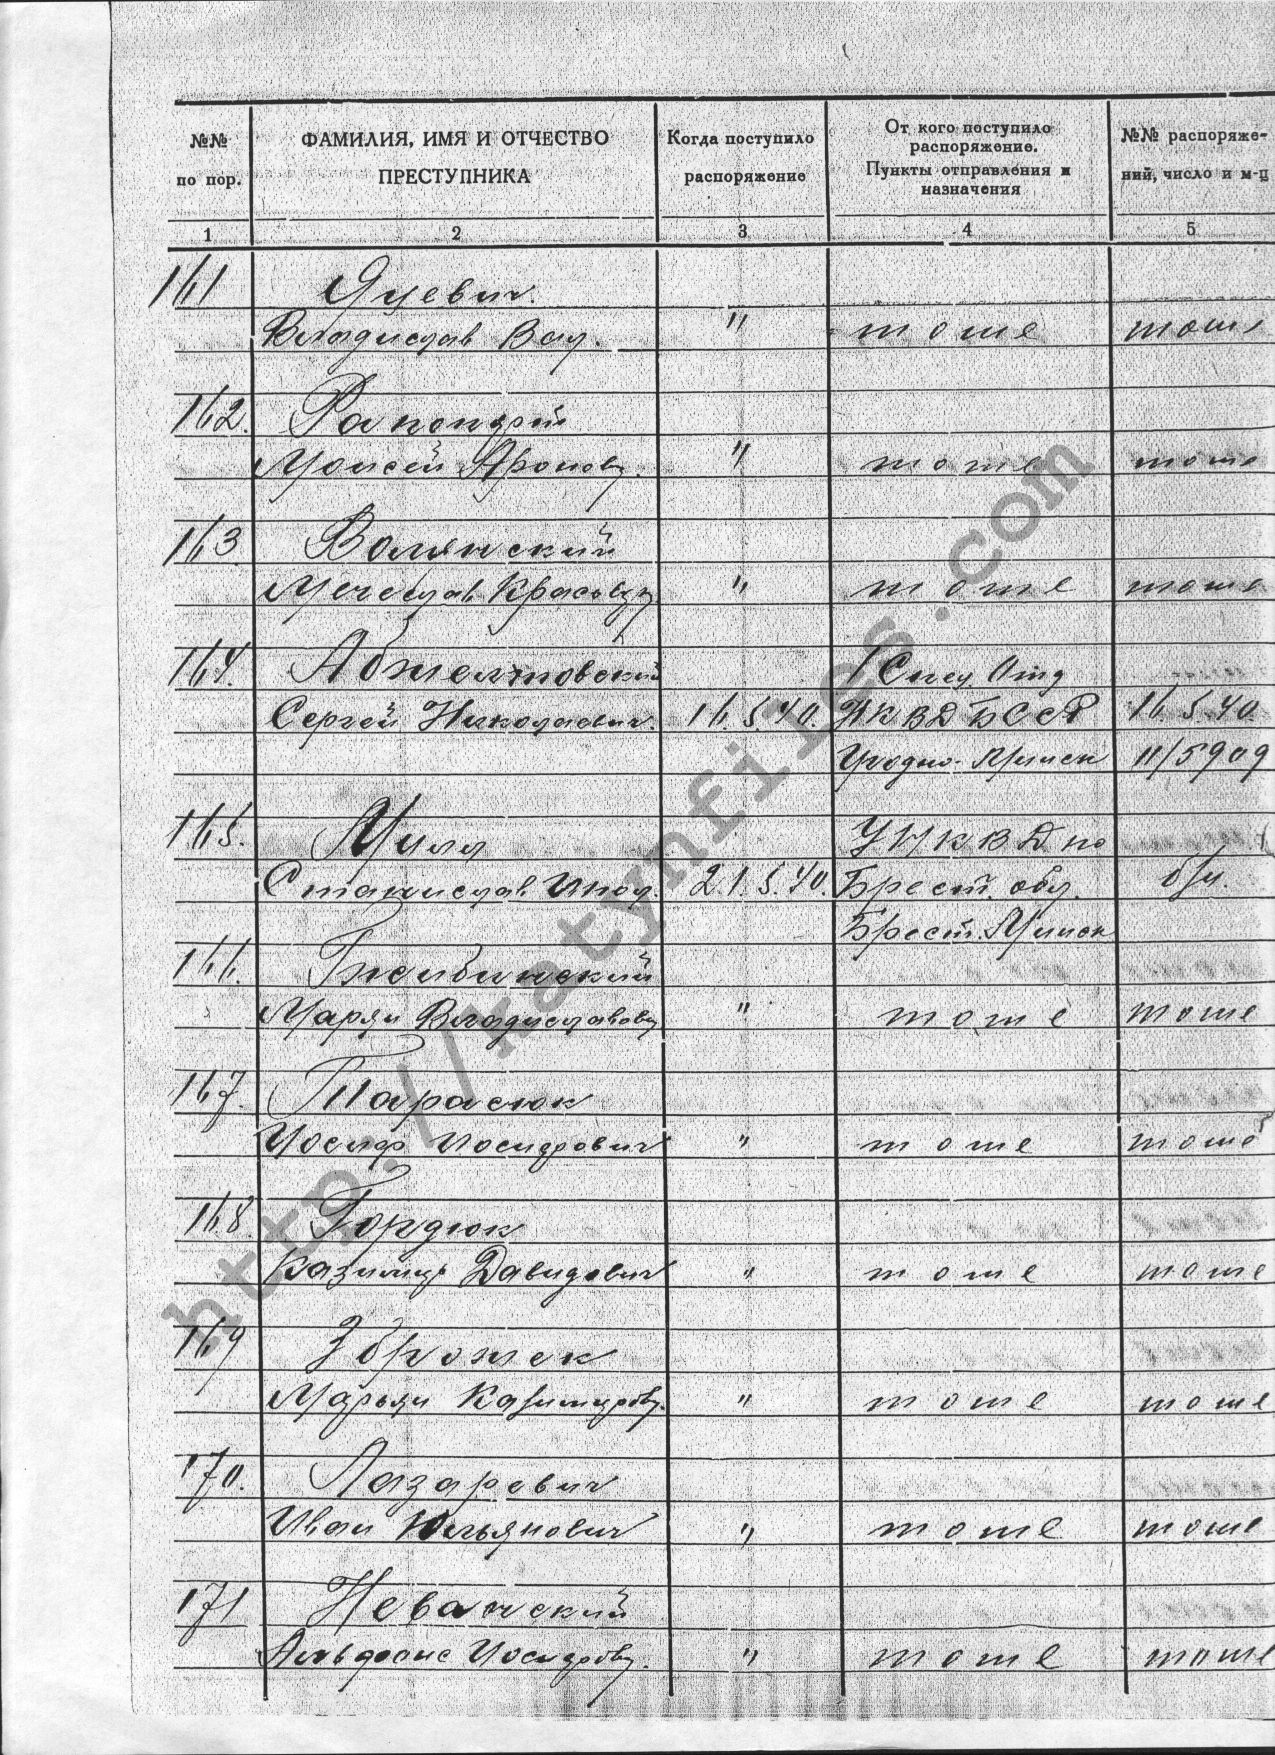 №№ по пор.
ФАМИЛИЯ, ИМЯ И ОТЧЕСТВО ПРЕСТУПНИКА
Когда поступило распоряжение
От кого поступило распоряжение. Пункты отправления и назначения
№№ распоряже- ний, число и м-ц
1 2 3 4 5
161 Яцевич
Владислав Вац. " тоже тоже
162. Рапопорт
Моисей Аронов. " тоже тоже
163 Волянский
Мечеслав " тоже тоже
164. 1 Спец. Отд
Сергей Николаевич 16.5.40. НКВД БССР 16.5.40.
Гродно-Минск 11/5909
165. УНКВД по
Станислав 21.5.40. Брест. обл. б/н.
Брест. Минск
166.
Марян Владиславов " тоже тоже
167. Тарасюк
Иосиф Иосифович " тоже тоже
168. Гордюк
Казимир Давидович " тоже тоже
169 Зброжек
Марьян Казимиров. " тоже тоже
170. Лазаревич
Иван Юльянович " тоже тоже
171
Альфонс Иосифов. " тоже тоже
http://katynfiles.com